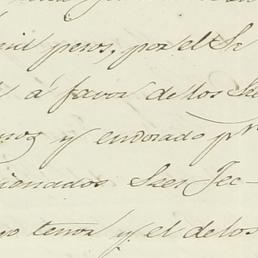 mil pesos, por el Sr
á favor de los Sre
y endosado pr
cionados Sres Tec-
tenor y el de los